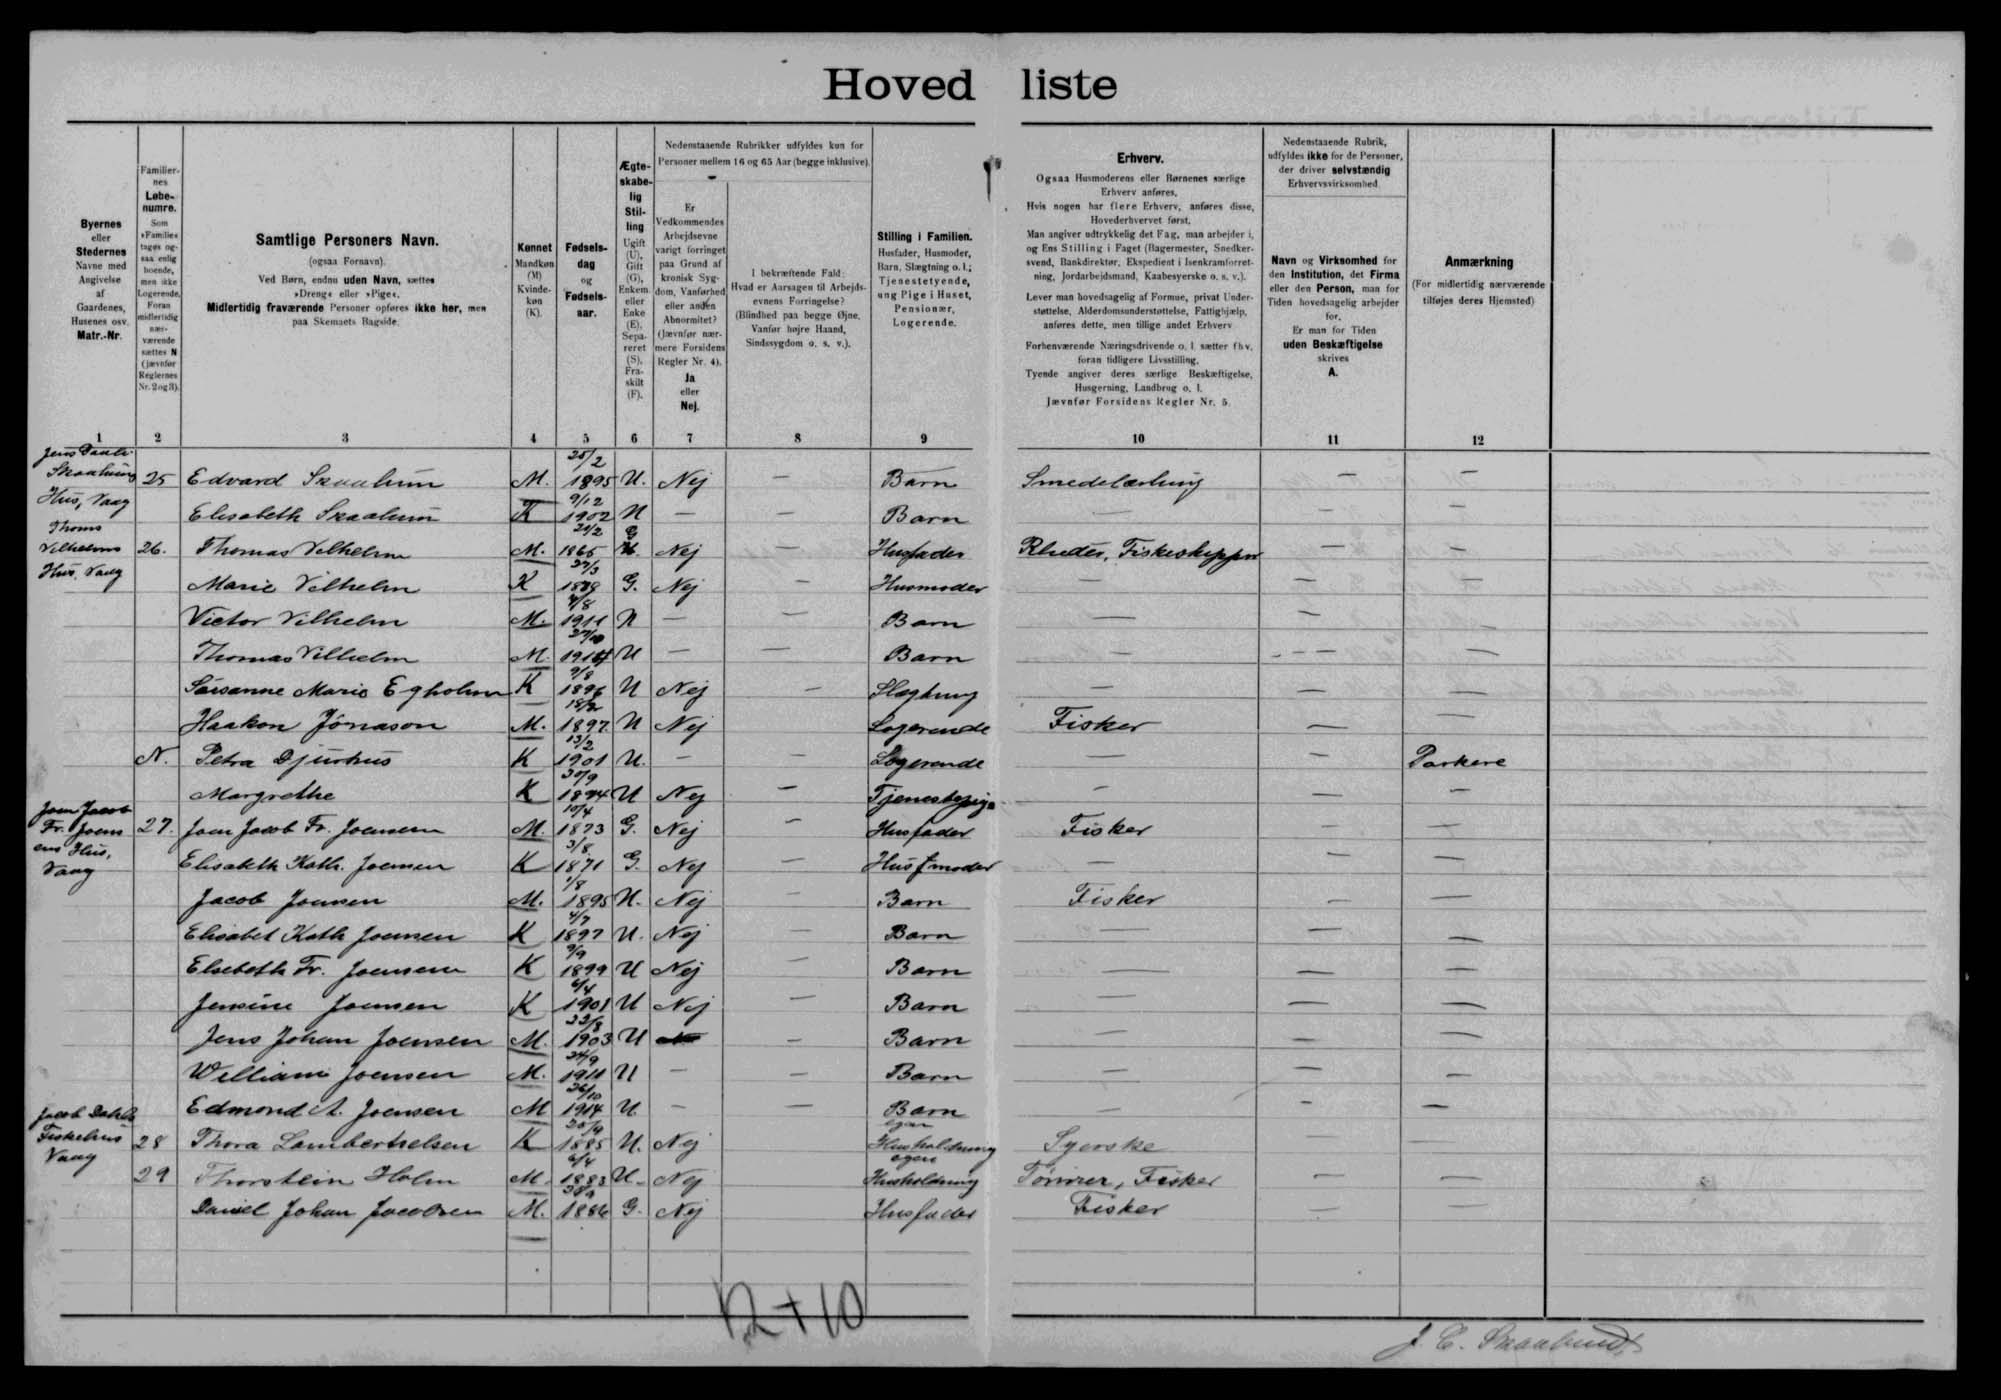 Hovedliste
Byernes eller Stedernes Navne med Angivelse af Gaardenes, Husenes osv. Matr.-Nr.
Familiernes Løbenumre. Som »Familie« tages ogsaa enlig boende, men ikke Logerende. Foran midlertidig nærværende sættes N (jævnfør Reglernes Nr. 2 og 3).
Samtlige Personers Navn. (ogsaa Fornavn). Ved Børn, endnu uden Navn, sættes »Dreng« eller »Pige«. Midlertidig fraværende Personer opføres ikke her, men paa Skemaets Bagside.
Kønnet Mandkøn (M) Kvindekøn (K).
Fødselsdag og Fødselsaar.
Ægteskabelig Stilling Ugift (U), Gift (G), Enkem. eller Enke (E), Separeret (S), Fraskilt (F).
Nedenstaaende Rubrikker udfyldes kun for Personer mellem 16 og 65 Aar (begge inklusive).
Er Vedkommendes Arbejdsevne varigt forringet paa Grund af kronisk Sygdom, Vanførhed eller anden Abnormitet? (Jævnfør nærmere Forsidens Regler Nr. 4). Ja eller Nej.
I bekræftende Fald: Hvad er Aarsagen til Arbejdsevnens Forringelse? (Blindhed paa begge Øjne, Vanfør højre Haand, Sindssygdom o. s. v.).
Stilling i Familien. Husfader, Husmoder, Barn, Slægtning o. l.; Tjenestetyende, ung Pige i Huset, Pensionær, Logerende.
Erhverv.
Ogsaa Husmoderens eller Børnenes særlige Erhverv anføres.
Hvis nogen har flere Erhverv, anføres disse, Hovederhvervet først.
Man angiver udtrykkelig det Fag, man arbejder i, og Ens Stilling i Faget (Bagermester, Snedkersvend, Bankdirektør, Ekspedient i Isenkramforretning, Jordarbejdsmand, Kaabesyerske o. s. v.).
Lever man hovedsagelig af Formue, privat Understøttelse, Alderdomsunderstøttelse, Fattighjælp, anføres dette, men tillige andet Erhverv.
Forhenværende Næringsdrivende o. l. sætter fhv. foran tidligere Livsstilling.
Tyende angiver deres særlige Beskæftigelse, Husgerning, Landbrug o. l.
Jævnfør Forsidens Regler Nr. 5.
Nedenstaaende Rubrik, udfyldes ikke for de Personer, der driver selvstændig Erhvervsvirksomhed.
Navn og Virksomhed for den Institution, det Firma eller den Person, man for Tiden hovedsagelig arbejder for. Er man for Tiden uden Beskæftigelse skrives A.
Anmærkning (For midlertidig nærværende tilføjes deres Hjemsted)
1 2 3 4 5 6 7 8 9 10 11 12
Hus, Vaag 25 Edvard Skaalum M. 1895 U. Nej — Barn Smedelærling — —
Elisabeth Skaalum K 9/12 1902 U — — Barn — — —
Vilhelms Hus, Vaag 26. Thomas Vilhelm M. 1865 G Nej — Husfader Rheder, Fiskeskipper — —
Marie Vilhelm K G. Nej Husmoder — — —
Victor Vilhelm M. 1911 U — — Barn — —
Thomas Vilhelm M. U — — Barn — — —
Susanne Marie Egholm K 9/8 1896 U Nej — Slægtning — — —
Haakon Jónason M. 1897 U Nej Logerende Fisker — —
N. Petra Djurhus K 13/2 1901 U. — — Logerende — — Porkere
Margrethe K 1894 U Nej — Tjenestepige — — —
Joen Jacob Fr. Joensens Hus, Vaag 27. Joen Jacob Fr. Joensen M. 10/4 1873 G. Nej — Husfader Fisker — —
Elisabeth Kath. Joensen K 3/8 1871 G. Nej — Husmoder — — —
Jacob Joensen M. 1/8 1895 U. Nej — Barn Fisker — —
Elisabet Kath Joensen K 4/7 1897 U. Nej — Barn — — —
Elsebeth Fr. Joensen K 9/9 1899 U Nej — Barn — — —
Jensine Joensen K 6/4 1901 U Nej — Barn — — —
Jens Johan Joensen M. 1903 U — Barn — — —
William Joensen M. 24/9 1911 U — — Barn — — —
Edmond A. Joensen M 26/10 1914 U — — Barn — — —
Jacob Dahls Fiskehus Vaag 28 Thora Lambertselsen K 1885 U. Nej egen Husholdning Syerske
29 Thorstein Holm M. 6/4 1883 U. Nej egen Husholdning Tømrer, Fisker — —
Daniel Johan Jacobsen M. 1886 G. Nej Husfader Fisker — —
12+10